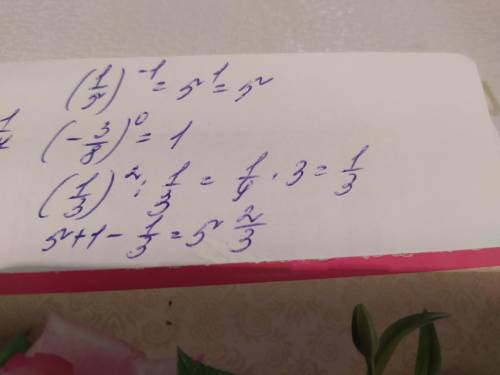 (1/5)^-1 = 5^1 = 5
1/4 (-3/8)^0 = 1
(1/3)^2 : 1/3 = 1/9 · 3 = 1/3
5+1 - 1/3 = 5 2/3